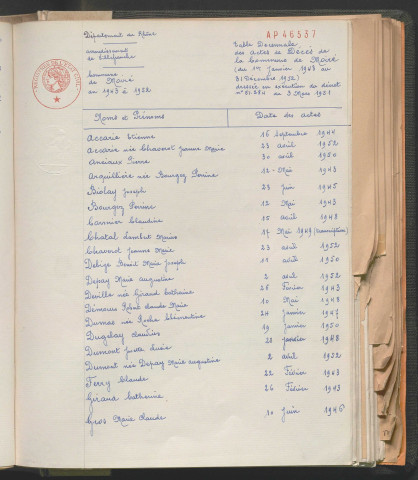 Département du Rhône
AP46537
arrondissement
de Villefranche
Table Décennale
des Actes de Décès de
la Commune de Moiré
Commune
de Moiré
(du 1er Janvier 1943 au
31 Décembre 1952)
de 1943 à 1952
dressée en exécution du décret
du 3 Mars 1951
Noms et Prénoms Date des actes
Accarie Etienne 16 Septembre 1944
Accarie née Chaverot Jeanne Marie 23 avril 1952
Anciaux Pierre 30 avril 1950
Arquillière née Bourgey Perrine 12 Mai 1943
Biolay Joseph 23 juin 1945
Bourgey Perrine 12 Mai 1943
Carnier Claudine 15 avril 1948
Chatal Lambert Marius 14 Mai 1944 (transcription)
Chaverot Jeanne Marie 23 avril 1952
Debize Benoit Marie Joseph 11 avril 1950
Depay Marie augustine 2 avril 1952
Deville née Giraud Catherine 26 Février 1943
Claude Marie 10 Mai 1948
Dumas née Roche Clémentine 24 Janvier 1947
Dugelay Claudius 19 janvier 1950
Dumont Julie 28 janvier 1948
Dumont née Depay Marie augustine 2 avril 1952
Ferry Claude 22 Février 1943
Giraud Catherine 26 Février 1943
Gros Marie Claude 10 juin 1946